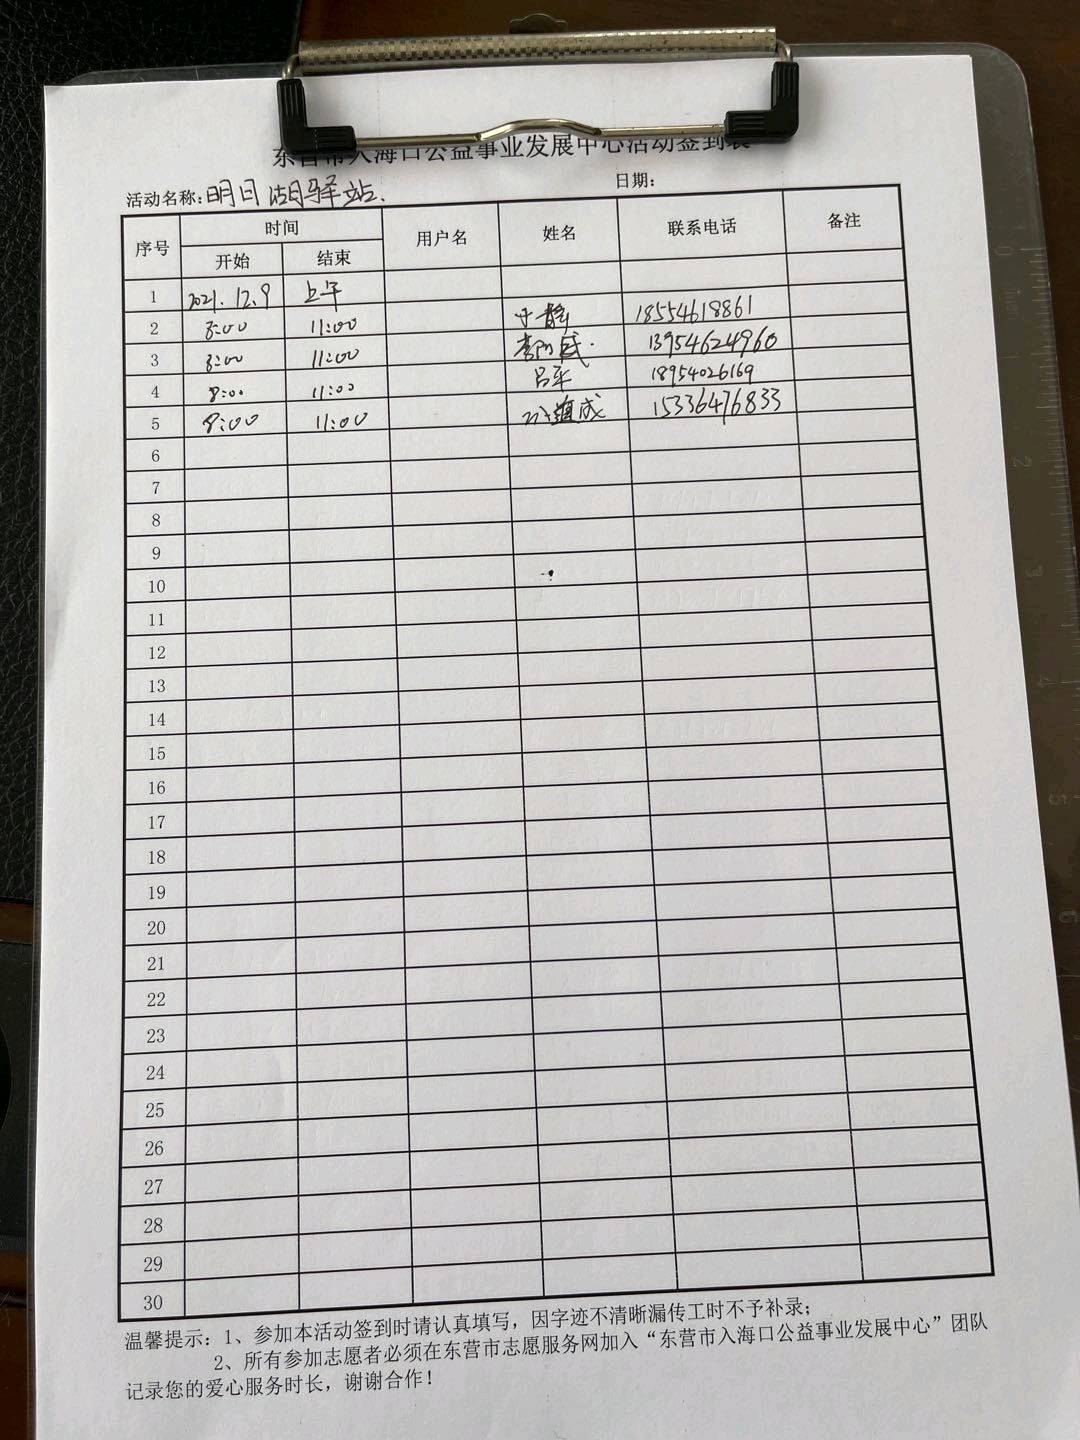 东营市入海口公益事业发展中心活动签到表
活动名称:明月湖驿站. 日期:
序号 时间 用户名 姓名 联系电话 备注
开始 结束
1 2021.12.9 上午
2 8:00 11:00 于静 18554618861
3 8:00 11:00 13954624960
4 8:00 11:00 吕平 18954026169
5 8:00 11:00 15336476833
6
7
8
9
10
11
12
13
14
15
16
17
18
19
20
21
22
23
24
25
26
27
28
29
30
温馨提示: 1、参加本活动签到时请认真填写，因字迹不清晰漏传工时不予补录；
2、所有参加志愿者必须在东营市志愿服务网加入“东营市入海口公益事业发展中心”团队
记录您的爱心服务时长，谢谢合作！